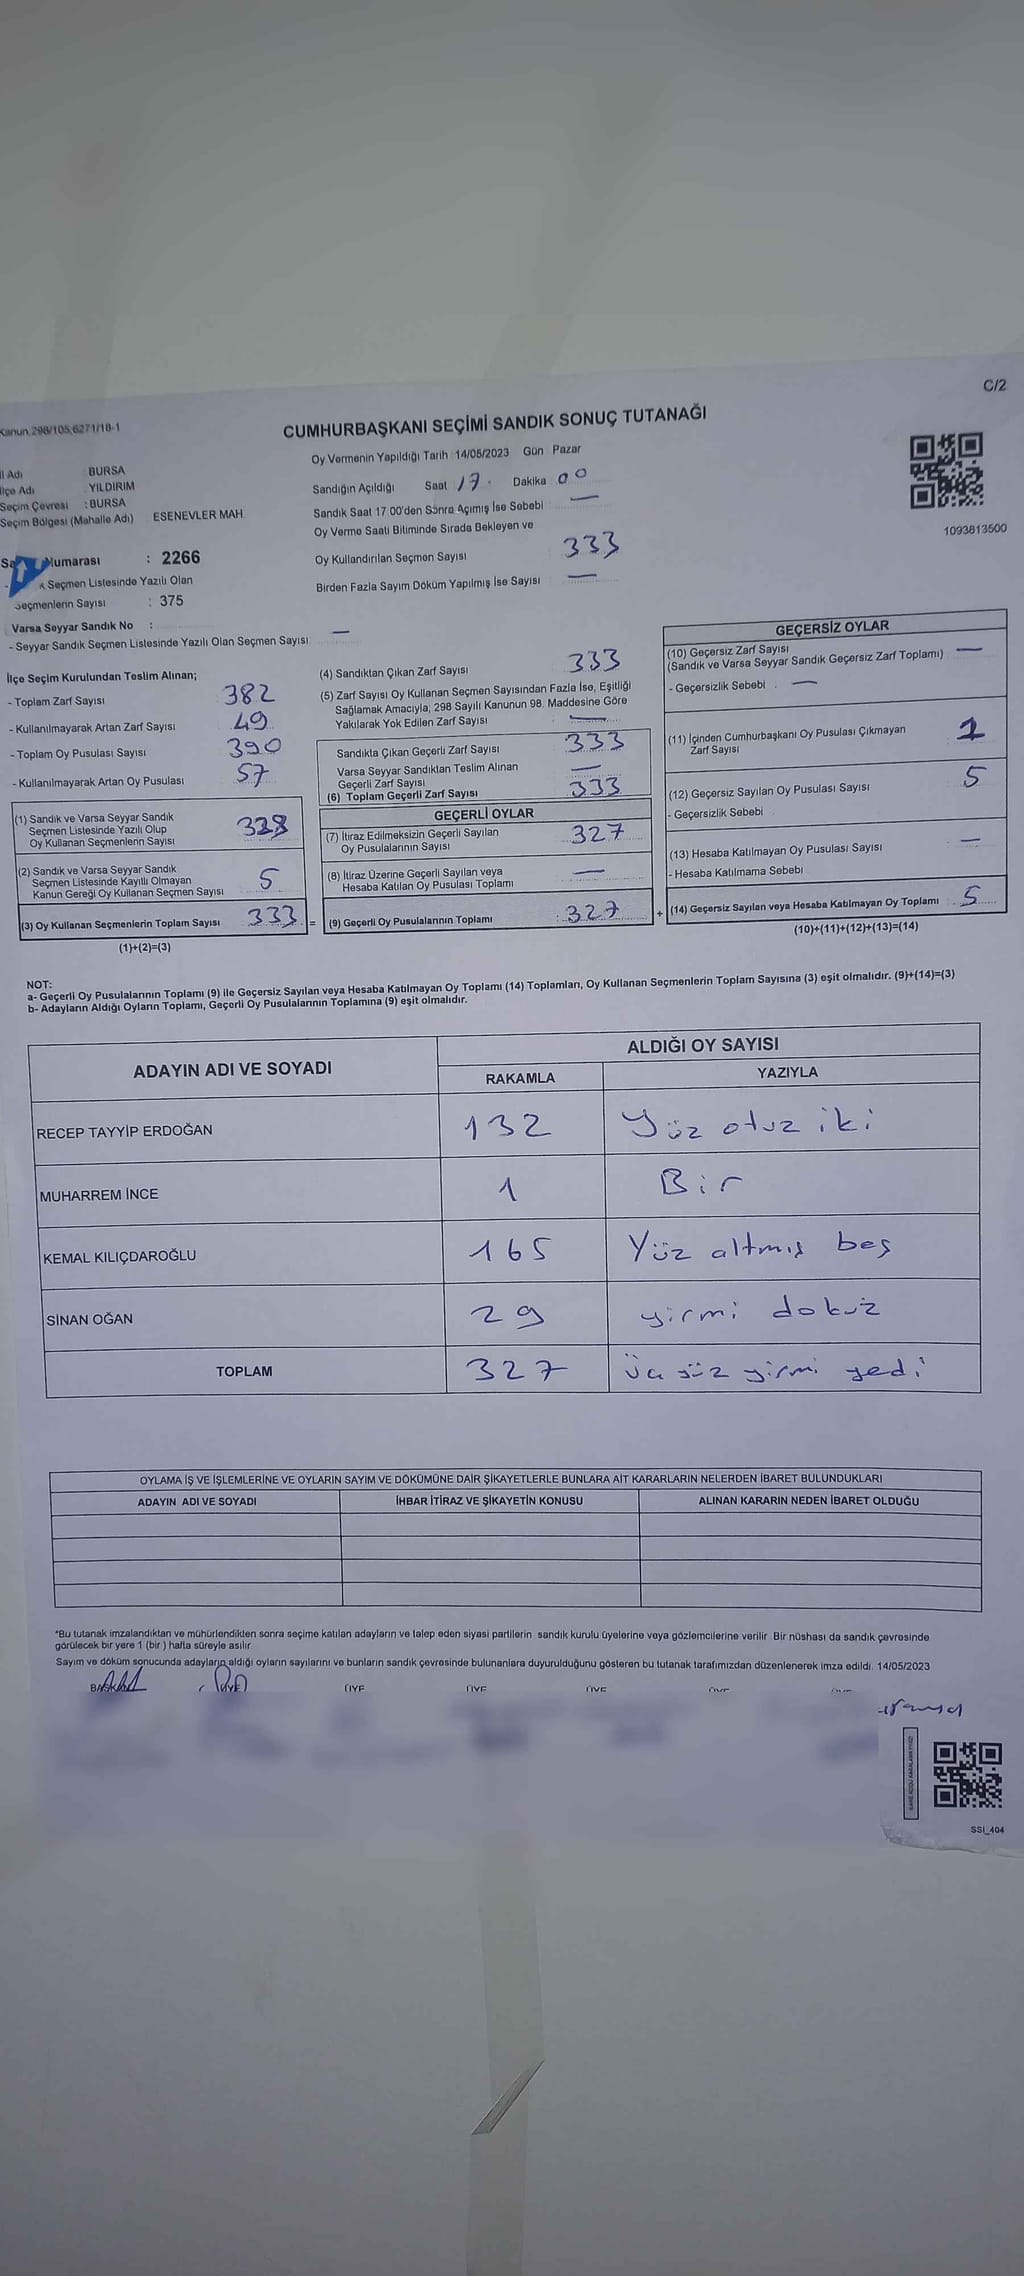 C/2
Kanun, 298/105,6271/18-1
CUMHURBAŞKANI SEÇİMİ SANDIK SONUÇ TUTANAĞI
İl Adı BURSA
İlçe Adı YILDIRIM
Seçim Çevresi : BURSA
Seçim Bölgesi (Mahalle Adı) ESENEVLER MAH
Numarası : 2266
Seçmen Listesinde Yazılı Olan
Seçmenlerin Sayısı : 375
Varsa Seyyar Sandık No :
- Seyyar Sandık Seçmen Listesinde Yazılı Olan Seçmen Sayısı —
Oy Vermenin Yapıldığı Tarih 14/05/2023 Gün Pazar
Sandığın Açıldığı Saat 17. Dakika 00
Sandık Saat 17 00'den Sonra Açımış İse Sebebi —
Oy Verme Saati Bitiminde Sırada Bekleyen ve
Oy Kullandırılan Seçmen Sayısı 333
Birden Fazla Sayım Döküm Yapılmış İse Sayısı —
1093813500
İlçe Seçim Kurulundan Teslim Alınan;
- Toplam Zarf Sayısı 382
- Kullanılmayarak Artan Zarf Sayısı 49
- Toplam Oy Pusulası Sayısı 390
- Kullanılmayarak Artan Oy Pusulası 57
(1) Sandık ve Varsa Seyyar Sandık
Seçmen Listesinde Yazılı Olup
Oy Kullanan Seçmenlerin Sayısı 328
(2) Sandık ve Varsa Seyyar Sandık
Seçmen Listesinde Kayıtlı Olmayan
Kanun Gereği Oy Kullanan Seçmen Sayısı 5
(3) Oy Kullanan Seçmenlerin Toplam Sayısı 333 =
(1)+(2)=(3)
(4) Sandıktan Çıkan Zarf Sayısı 333
(5) Zarf Sayısı Oy Kullanan Seçmen Sayısından Fazla İse, Eşitliği
Sağlamak Amacıyla, 298 Sayılı Kanunun 98. Maddesine Göre
Yakılarak Yok Edilen Zarf Sayısı —
Sandıkta Çıkan Geçerli Zarf Sayısı 333
Varsa Seyyar Sandıktan Teslim Alınan
Geçerli Zarf Sayısı —
(6) Toplam Geçerli Zarf Sayısı 333
GEÇERLİ OYLAR
(7) İtiraz Edilmeksizin Geçerli Sayılan
Oy Pusulalarının Sayısı 327
(8) İtiraz Üzerine Geçerli Sayılan veya
Hesaba Katılan Oy Pusulası Toplamı —
(9) Geçerli Oy Pusulalarının Toplamı : 327 +
GEÇERSİZ OYLAR
(10) Geçersiz Zarf Sayısı
(Sandık ve Varsa Seyyar Sandık Geçersiz Zarf Toplamı) —
- Geçersizlik Sebebi : —
(11) İçinden Cumhurbaşkanı Oy Pusulası Çıkmayan
Zarf Sayısı 1
(12) Geçersiz Sayılan Oy Pusulası Sayısı 5
- Geçersizlik Sebebi
(13) Hesaba Katılmayan Oy Pusulası Sayısı —
- Hesaba Katılmama Sebebi
(14) Geçersiz Sayılan veya Hesaba Katılmayan Oy Toplamı 5
(10)+(11)+(12)+(13)=(14)
NOT:
a- Geçerli Oy Pusulalarının Toplamı (9) ile Geçersiz Sayılan veya Hesaba Katılmayan Oy Toplamı (14) Toplamları, Oy Kullanan Seçmenlerin Toplam Sayısına (3) eşit olmalıdır. (9)+(14)=(3)
b- Adayların Aldığı Oyların Toplamı, Geçerli Oy Pusulalarının Toplamına (9) eşit olmalıdır.
ADAYIN ADI VE SOYADI ALDIĞI OY SAYISI
RAKAMLA YAZIYLA
RECEP TAYYİP ERDOĞAN 132 Yüz otuz iki
MUHARREM İNCE 1 Bir
KEMAL KILIÇDAROĞLU 165 Yüz altmış beş
SİNAN OĞAN 29 yirmi dokuz
TOPLAM 327 Üç yüz yirmi yedi
OYLAMA İŞ VE İŞLEMLERİNE VE OYLARIN SAYIM VE DÖKÜMÜNE DAİR ŞİKAYETLERLE BUNLARA AİT KARARLARIN NELERDEN İBARET BULUNDUKLARI
ADAYIN ADI VE SOYADI İHBAR İTİRAZ VE ŞİKAYETİN KONUSU ALINAN KARARIN NEDEN İBARET OLDUĞU
*Bu tutanak imzalandıktan ve mühürlendikten sonra seçime katılan adayların ve talep eden siyasi partilerin sandık kurulu üyelerine veya gözlemcilerine verilir. Bir nüshası da sandık çevresinde
görülecek bir yere 1 (bir) hafta süreyle asılır.
Sayım ve döküm sonucunda adayların aldığı oyların sayılarını ve bunların sandık çevresinde bulunanlara duyurulduğunu gösteren bu tutanak tarafımızdan düzenlenerek imza edildi. 14/05/2023
BAŞKAN ÜYE ÜYE ÜYE ÜYE
SSI_404